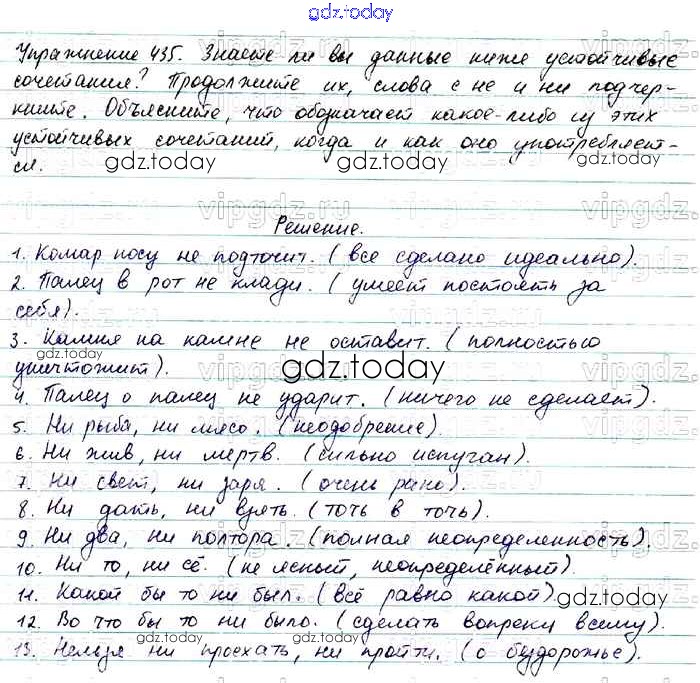 gdz.today
Упражнение 435. Знаете ли вы данные ниже устойчивые
сочетания? Продолжите их, слова с не и ни подчер-
кните. Объясните, что обозначает какое-либо из этих
устойчивых сочетаний, когда и как оно употребляет-
ся.
gdz.today gdz.today
Решение.
1. Комар носу не подточит. (все сделано идеально).
2. Палец в рот не клади. (умеет постоять за
себя).
3. Камня на камне не оставит. (полностью
gdz.today
уничтожит).
gdz.today
4. Палец о палец не ударит. (ничего не сделает).
5. Ни рыба, ни мясо. (неодобрение).
6. Ни жив, ни мертв. (сильно испуган).
7. Ни свет, ни заря. (очень рано).
8. Ни дать, ни взять. (точь в точь).
9. Ни два, ни полтора. (полная неопределенность).
10. Ни то, ни сё. (не ясный, неопределённый).
11. Какой бы то ни был. (всё равно какой).
gdz.today
12. Во что бы то ни было. (сделать вопреки всему).
gdz.today
13. Нельзя ни проехать, ни пройти. (о бездорожье).